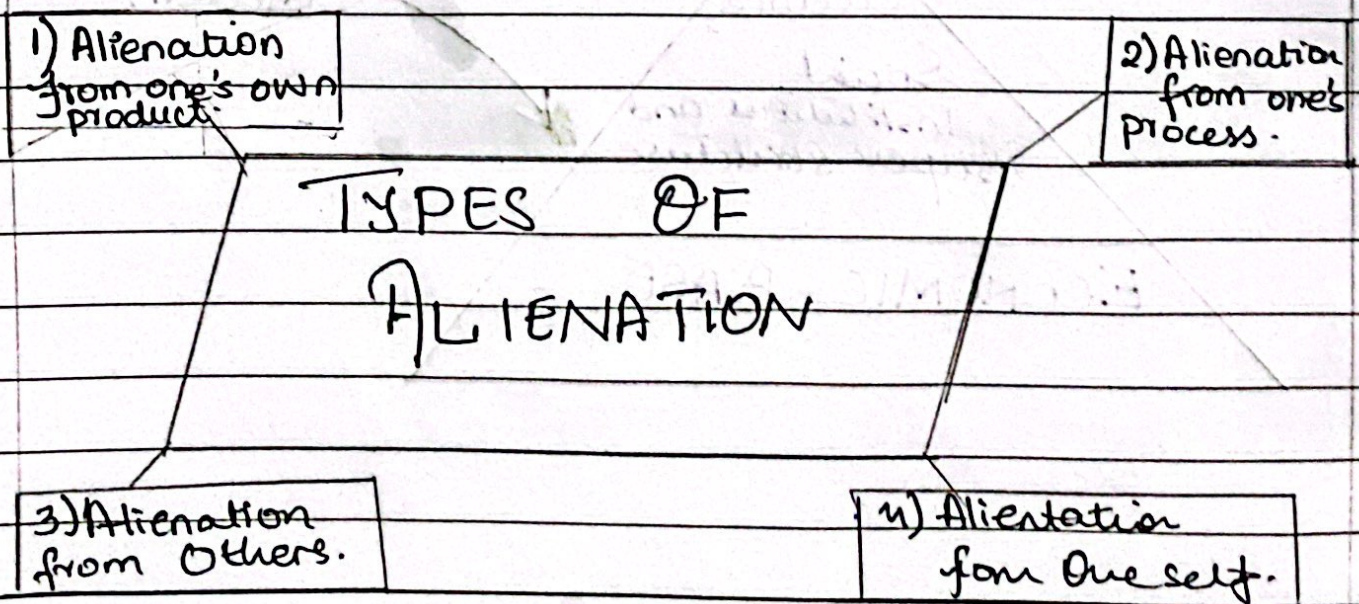 1) Alienation
from one's own
product.
2) Alienation
from one's
process.
TYPES OF
ALIENATION
3) Alienation
from Others.
4) Alientation
fom One self.